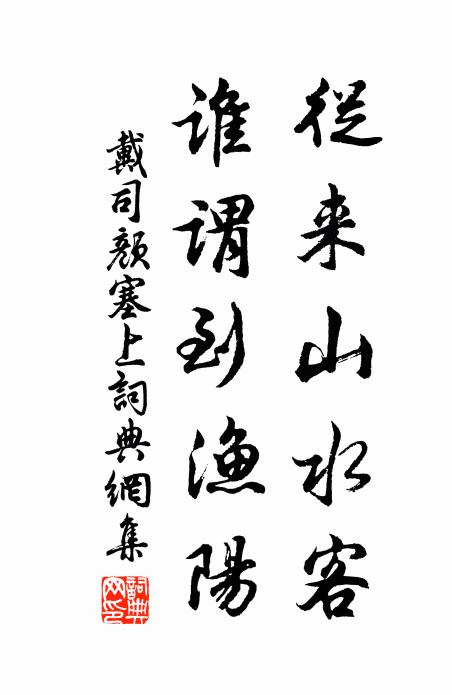 從来山水客
誰謂到漁陽
戴司顏塞上詞典網集
詞典網印